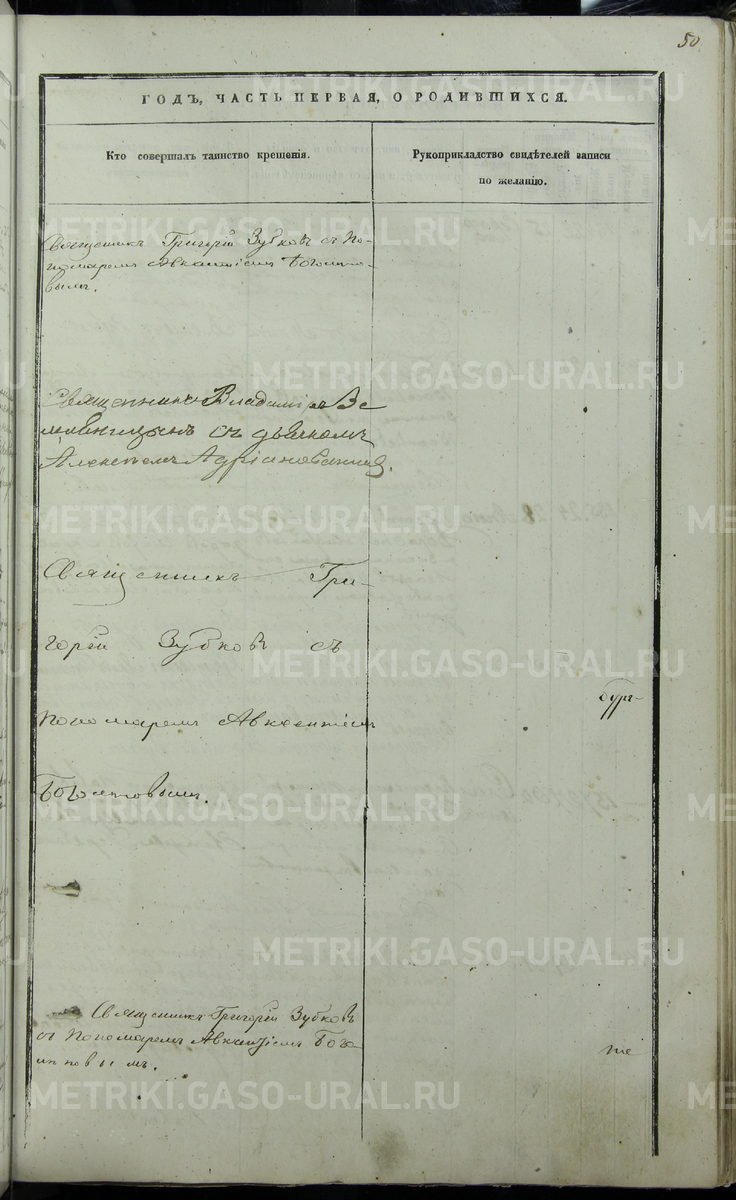 50
ГОДЪ, ЧАСТЬ ПЕРВАЯ, О РОДИВШИХСЯ.
Кто совершалъ таинство крещенія.
Рукоприкладство свидѣтелей записи
по желанію.
Священникъ Григорій Зубковъ съ По-
номаремъ Авксентіемъ
вымъ.
Священникъ Владиміръ
съ дьячкомъ
Алексѣемъ
Священникъ Гри-
горій Зубковъ съ
Пономаремъ Авксентіемъ
Священникъ Григорій Зубковъ
съ Пономаремъ Авксентіемъ
METRIKI.GASO-URAL.RU